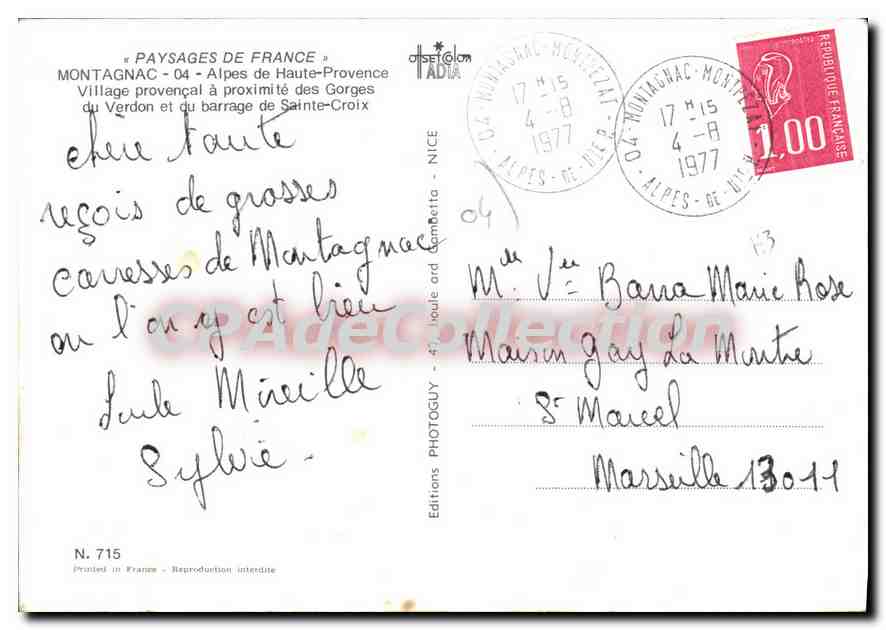 « PAYSAGES DE FRANCE »
MONTAGNAC - 04 - Alpes de Haute-Provence
Village provençal à proximité des Gorges
du Verdon et du barrage de Sainte-Croix
chère tante
reçois de grosses
caresses de Montagnac
ou l'on y est bien
Mireille
Sylvie -
N. 715
Printed in France - Reproduction interdite
offset color
ADIA
Editions PHOTOGUY - 47, boulevard Gambetta - NICE
04 - MONTAGNAC-MONTPEZAT
17 H 15
4 - 8
1977
ALPES-DE-HTE P.
04 - MONTAGNAC-MONTPEZAT
17 H 15
4 - 8
1977
ALPES-DE-HTE P.
REPUBLIQUE FRANÇAISE
1,00
04
Mme Vve Barra Marie Rose
Maison Gay La Montre
St Marcel
Marseille 13011
CPAdeCollection